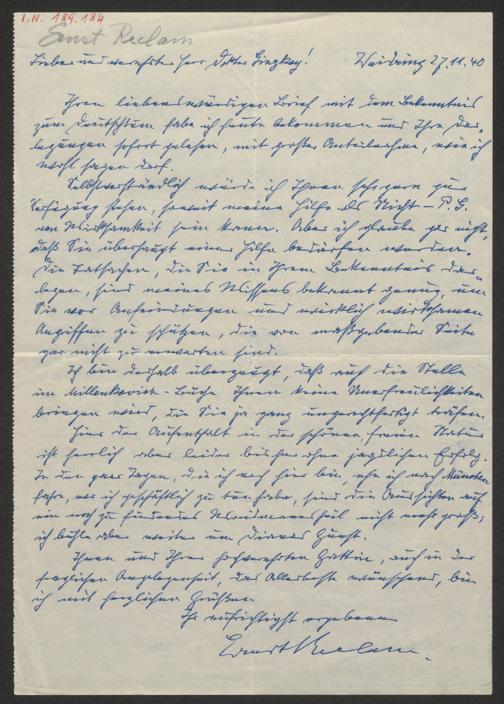 I.N. 189.184
Ernst Reclam
Lieber und verehrter Herr Doktor Ginzkey! Waidring 27.11.40
Ihren liebenswürdigen Brief mit dem Bekenntnis
zum Deutschtum habe ich heute bekommen und Ihre Dar-
legungen sofort gelesen, mit großer Anteilnahme, wie ich
wohl sagen darf.
Selbstverständlich würde ich Ihnen sehr gern zur
Verfügung stehen, soweit meine Hilfe als Nicht-P.G.
von Wirksamkeit sein kann. Aber ich glaube gar nicht,
daß Sie überhaupt einer Hilfe bedürfen werden.
Die Tatsachen, die Sie in Ihrem Bekenntnis dar-
legen, sind meines Wissens bekannt genug, um
Sie vor Anfeindungen und wirklich wirksamen
Angriffen zu schützen, die von maßgebender Seite
gar nicht zu erwarten sind.
Ich bin deshalb überzeugt, daß auch die Stelle
im Millenkovich-Buche Ihnen keine Unerfreulichkeiten
bringen wird, die Sie ja ganz ungerechtfertigt träfen.
Hier der Aufenthalt in der schönen, freien Natur
ist herrlich aber leider bisher ohne jagdlichen Erfolg.
In den paar Tagen, die ich noch hier bin, ehe ich nach München
fahre, wo ich geschäftlich zu tun habe, sind die Aussichten auf
ein noch zu findendes Weidmannsheil nicht mehr groß;
ich buhle aber weiter um Dianas Gunst.
Ihnen und Ihrer hochverehrten Gattin, auch in der
fraglichen Angelegenheit, das Allerbeste wünschend, bin
ich mit herzlichen Grüßen
Ihr aufrichtigst ergebener
Ernst Reclam.